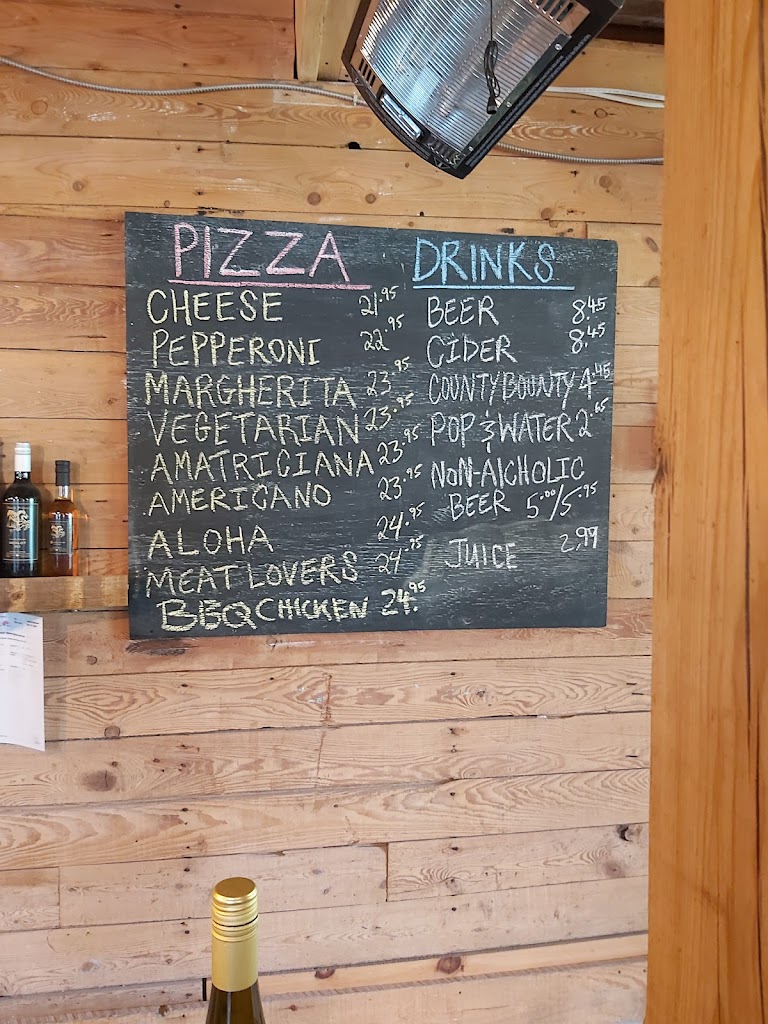 PIZZA
CHEESE 21.95
PEPPERONI 22.95
MARGHERITA 23.95
VEGETARIAN 23.95
AMATRICIANA 23.95
AMERICANO 23.95
ALOHA 24.95
MEAT LOVERS 24.95
BBQ CHICKEN 24.95
DRINKS
BEER 8.45
CIDER 8.45
COUNTY BOUNTY 4.45
POP & WATER 2.65
NON-AlCHOLIC
BEER 5.00/5.95
JUICE 2.99